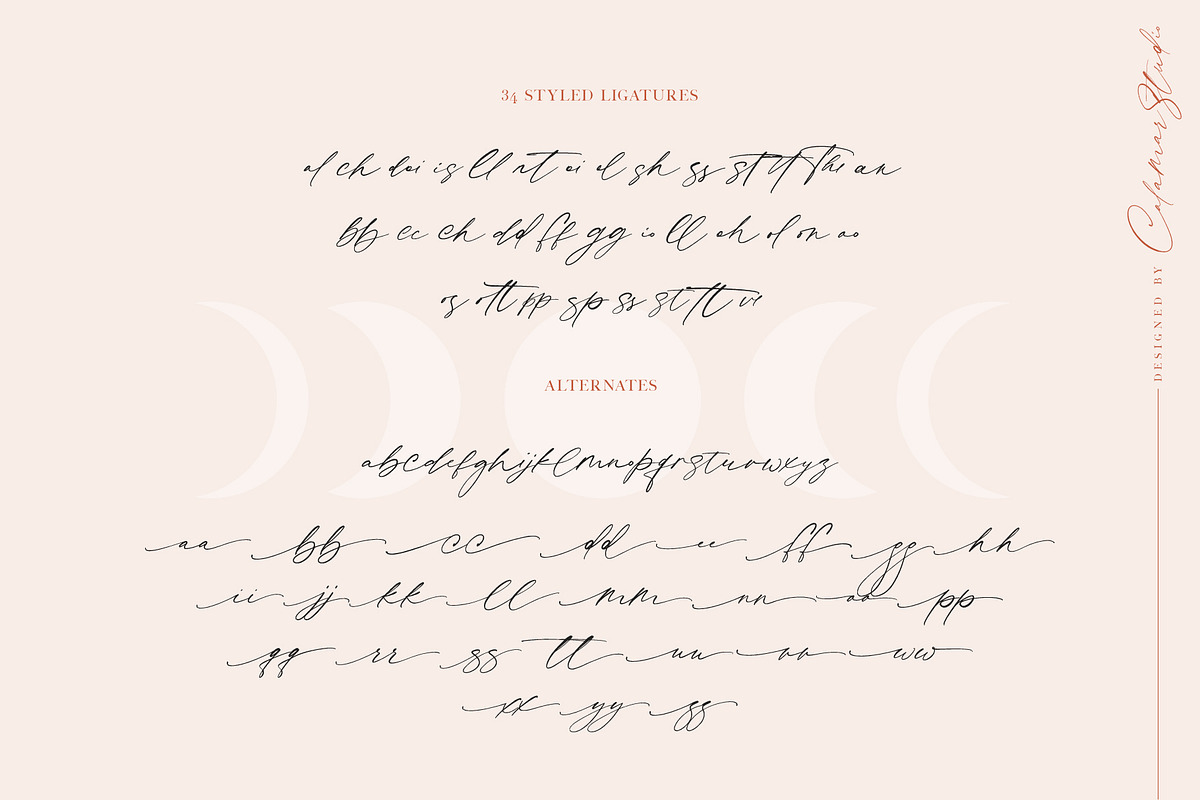 34 STYLED LIGATURES
al ch doi is ll rt oi el sh ss st tt The an
bb cc ch dd ff gg io ll oh ol on oo
os ott pp sp ss st tt ve
ALTERNATES
abcdefghijklmnopqrstuvwxyz
aa bb cc dd ee ff gg hh
ii jj kk ll mm nn oo pp
qq rr ss tt uu vv ww
xx yy zz
DESIGNED BY Calamar Studio